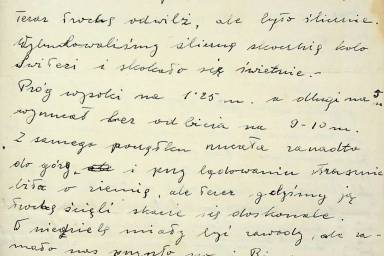 teraz trochę odwilż, ale było ślicznie.
Wybudowaliśmy śliczną skocznię koło
Świtezi i skakało się świetnie.-
Próg wysoki na 1·25 m. a długi na 5
wyrzucał bez odbicia na 9-10 m.
Z samego początku rzucała zanadto
do góry, i przy lądowaniu strasznie
biła o ziemię, ale teraz gdyśmy ją
trochę ścięli skacze się doskonale.
W niedzielę miały być zawody, ale za-
mało nas przyszło